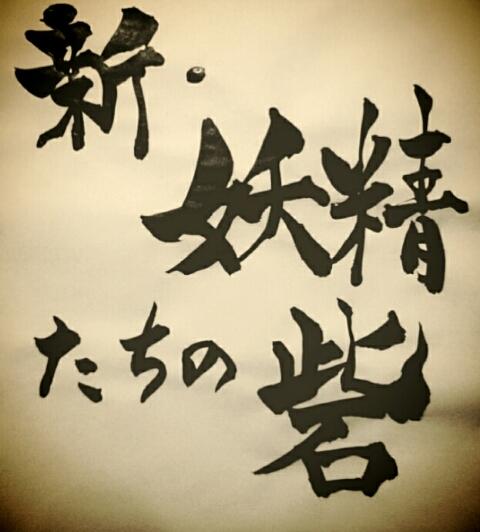 新・
妖精
たちの砦